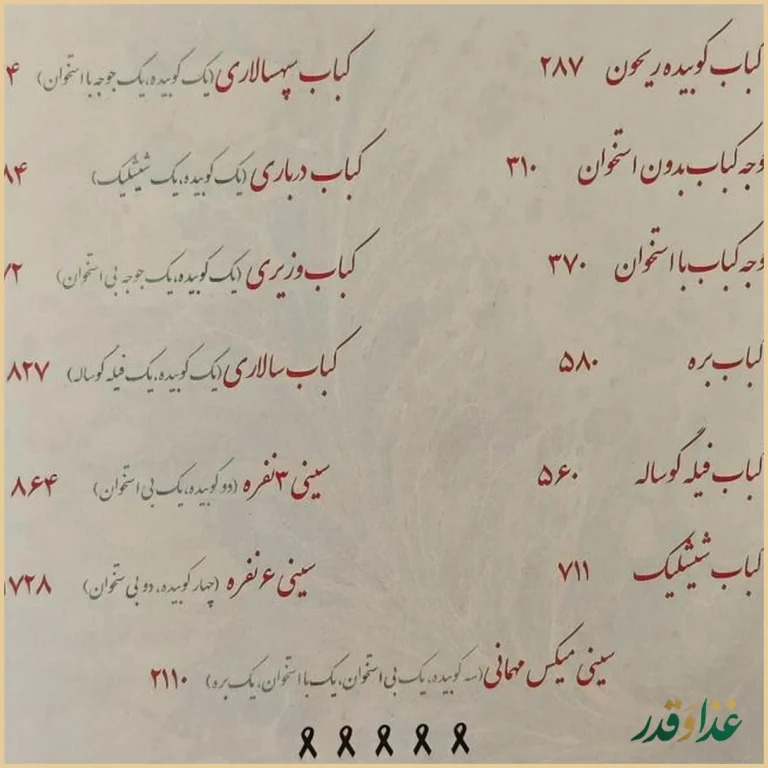 کباب کوبیده ریحون ۲۸۷
وجه کباب بدون استخوان ۳۱۰
وجه کباب با استخوان ۳۷۰
کباب بره ۵۸۰
کباب فیله گوساله ۵۶۰
کباب شیشلیک ۷۱۱
کباب سپهسالاری (یک کوبیده، یک جوجه با استخوان) ۴
کباب درباری (یک کوبیده، یک شیشلیک) ۸۴
کباب وزیری (یک کوبیده، یک جوجه بی استخوان) ۷۲
کباب سالاری (یک کوبیده، یک فیله گوساله) ۸۲۷
سینی ۳ نفره (دو کوبیده، یک بی استخوان) ۸۶۴
سینی ۶ نفره (چهار کوبیده، دو بی ستخوان) ۱۷۲۸
سینی میکس مهمانی (سه کوبیده، یک بی استخوان، یک با استخوان، یک بره) ۲۱۱۰
غذا و قدر